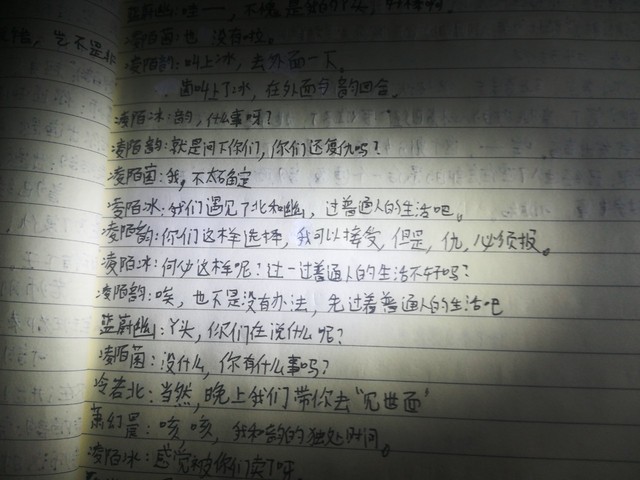 蓝蔚幽：哇——，不愧是
凌陌菌：也没有啦。
凌陌韵：叫上冰，去外面一下。
菌叫上了冰，在外面与韵回合。
凌陌冰：韵，什么事呀？
凌陌韵：就是问下你们，你们还复仇吗？
凌陌菌：我，不太确定
凌陌冰：我们遇见了北和幽，过普通人的生活吧。
凌陌韵：你们这样选择，我可以接受，但是，仇，必须报。
凌陌冰：何必这样呢？过一过普通人的生活不好吗？
凌陌韵：唉，也不是没有办法，先过着普通人的生活吧
蓝蔚幽：丫头，你们在说什么呢？
凌陌菌：没什么，你有什么事吗？
冷若北：当然，晚上我们带你去“见世面”
萧幻晨：咳咳，我和韵的独处时间。
凌陌冰：感觉被你们卖了呀